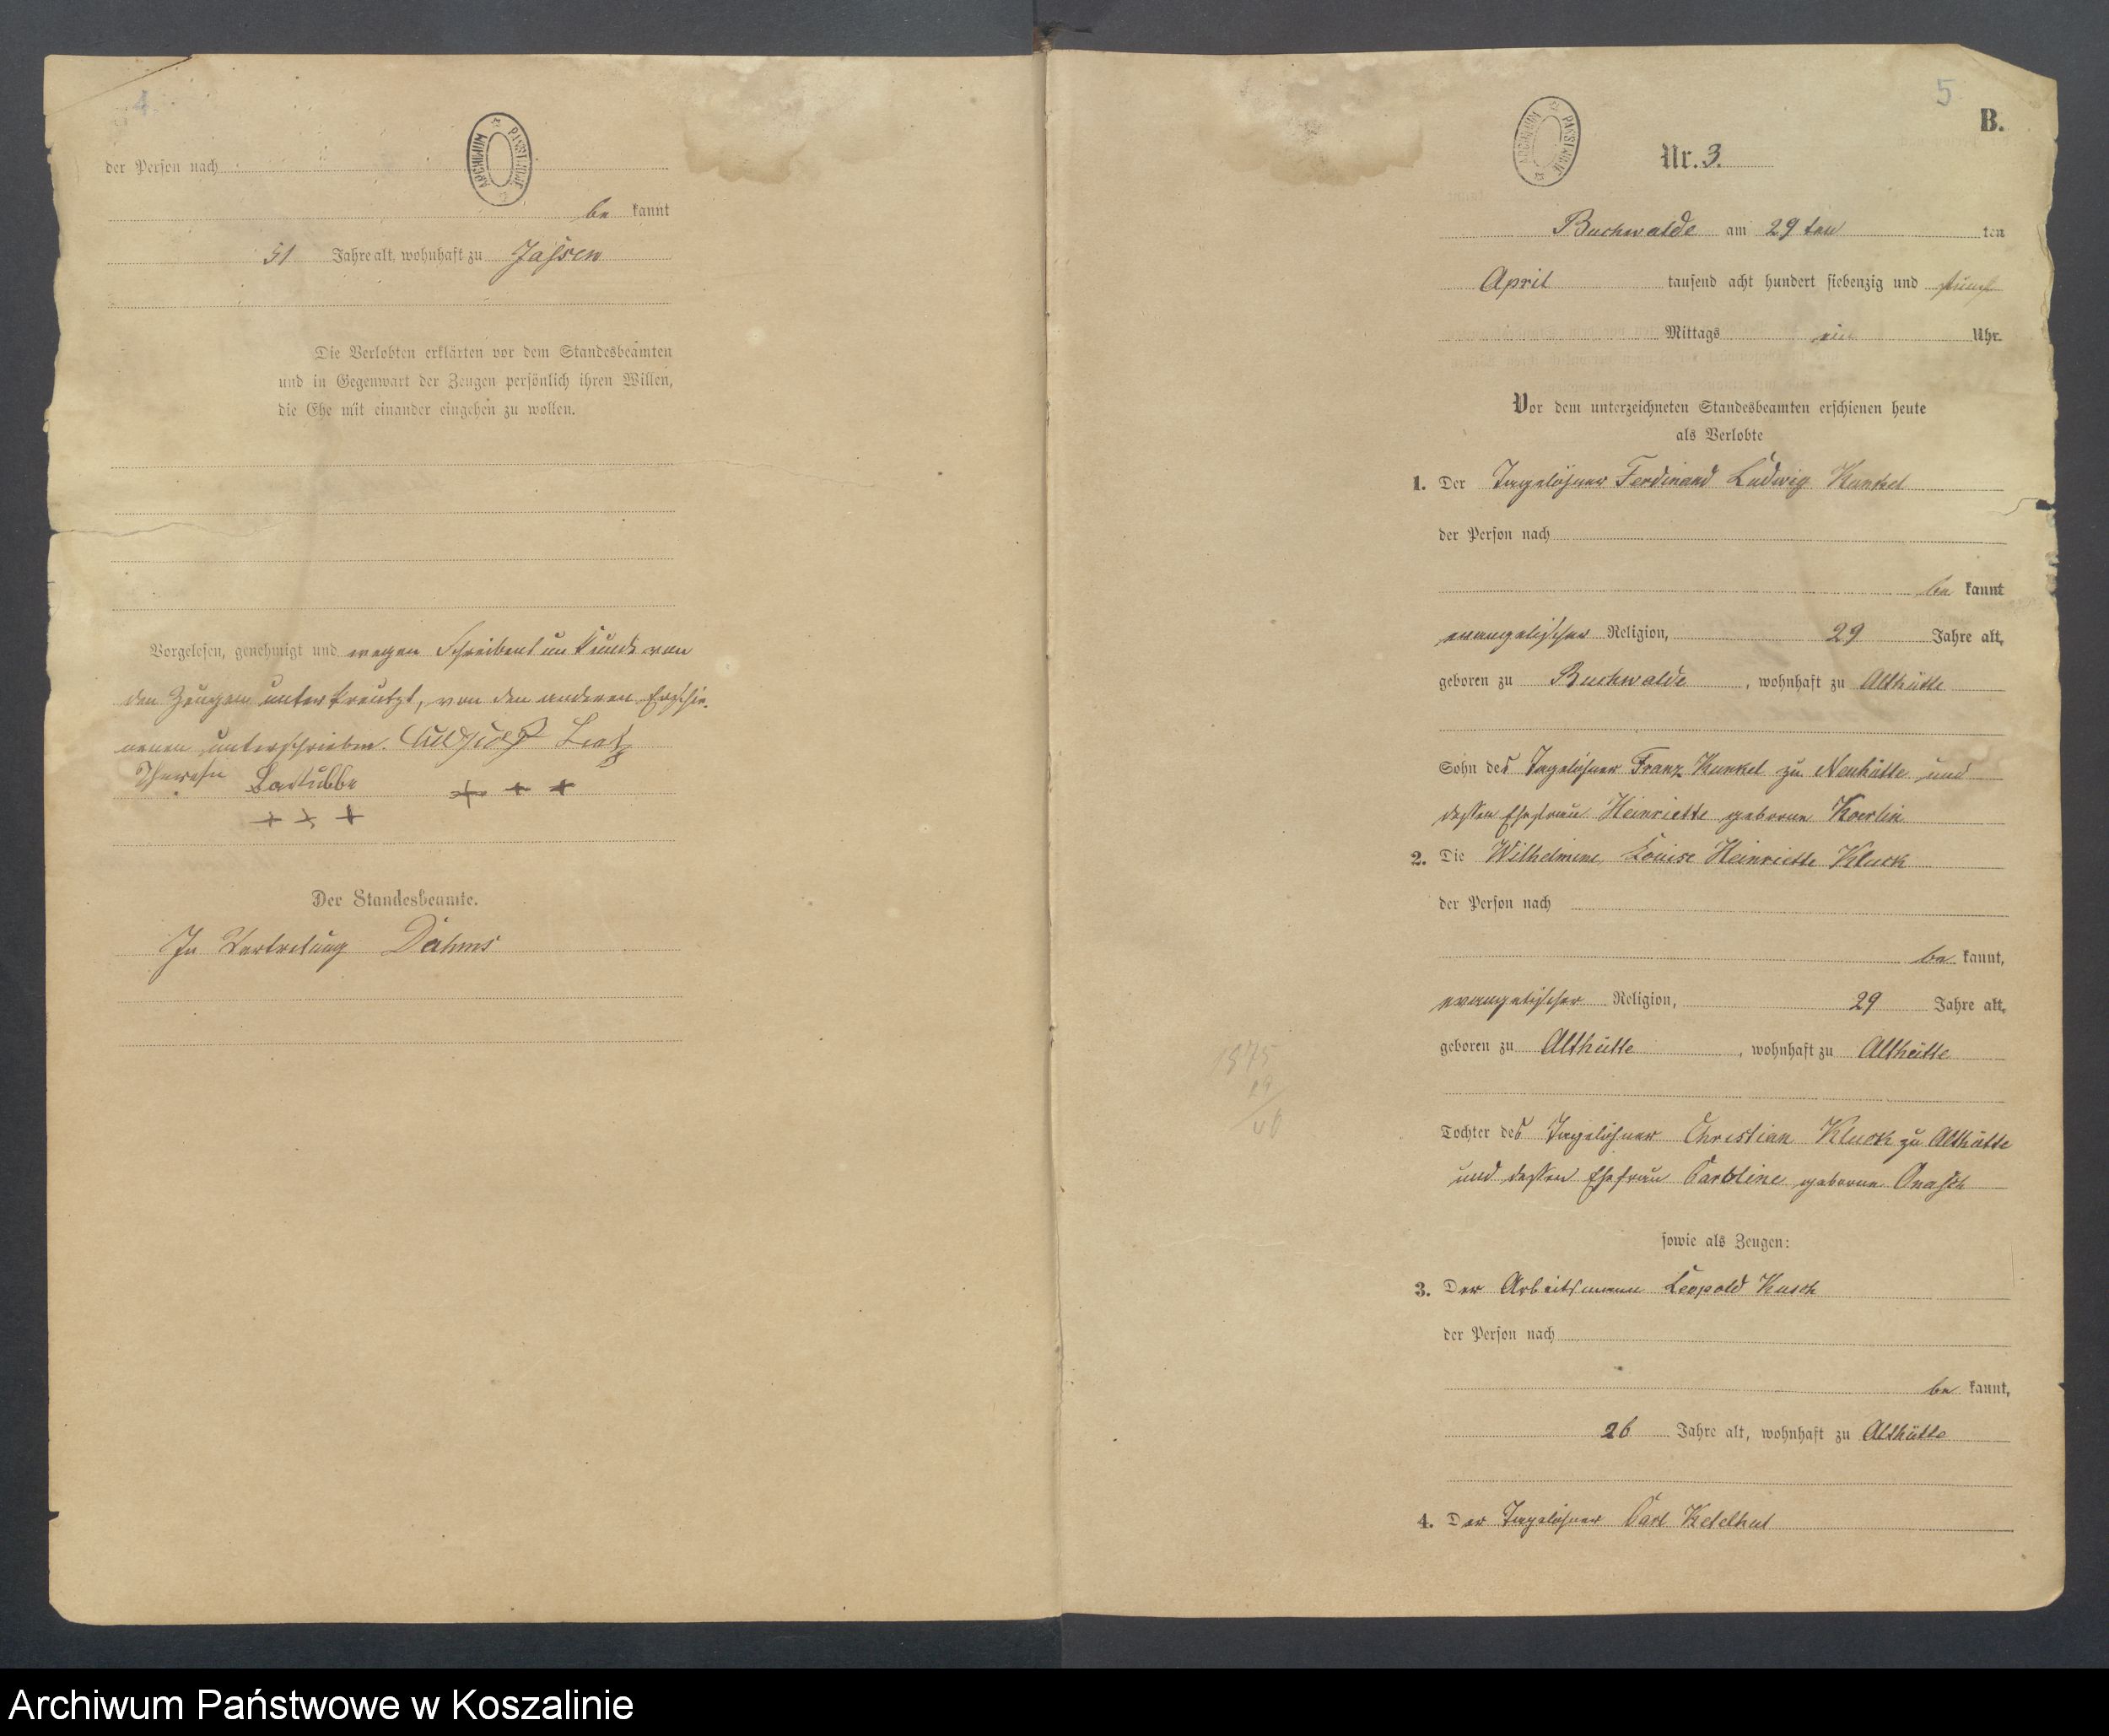 4.
ARCHIWUM PAŃSTWOWE
der Person nach
be kannt
51 Jahre alt, wohnhaft zu Jassen
Die Verlobten erklärten vor dem Standesbeamten
und in Gegenwart der Zeugen persönlich ihren Willen,
die Ehe mit einander eingehen zu wollen.
Vorgelesen, genehmigt und wegen Schreibens un Kunde von
den Zeugen unterkreutzt, von den anderen Erschie-
nenen unterschrieben. August
Therese
+ + +
+ + +
Der Standesbeamte.
In Vertretung Dahms
5
B.
ARCHIWUM PAŃSTWOWE
Nr. 3.
Buchwalde am 29 ten ten
April tausend acht hundert siebenzig und fünf
Mittags ein Uhr.
Vor dem unterzeichneten Standesbeamten erschienen heute
als Verlobte
1. Der Tagelöhner Ferdinand Ludwig Kunkel
der Person nach
be kannt
evangelischer Religion, 29 Jahre alt,
geboren zu Buchwalde, wohnhaft zu Althütte
Sohn des Tagelöhner Franz Kunkel zu Neuhütte und
dessen Ehefrau Heinriette geborne Koerlin
2. Die Wilhelmine Louise Heinriette Kluck
der Person nach
be kannt,
evangelischer Religion, 29 Jahre alt,
geboren zu Althütte, wohnhaft zu Althütte
Tochter des Tagelöhner Christian Kluck zu Althütte
und dessen Ehefrau Caroline geborne Onasch
1875
29
46
sowie als Zeugen:
3. Der Arbeitsmann Leopold Kusch
der Person nach
be kannt,
26 Jahre alt, wohnhaft zu Althütte
4. Der Tagelöhner Carl Ketelhut
Archiwum Państwowe w Koszalinie